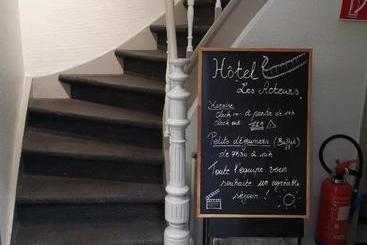 Hôtel
Les Acteurs
Horaire
check in: à partir de 14h
check out: 11h
Petits déjeuners (Buffet)
de 7h30 à 10h
Toute l'équipe vous
souhaite un agréable
séjour !